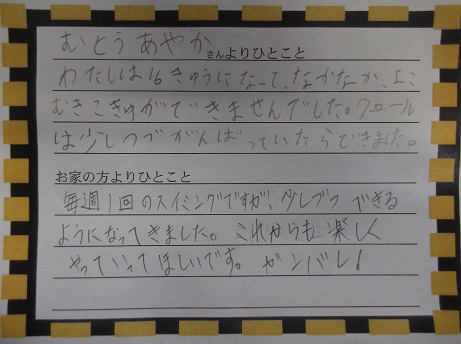 むとう あやかさんよりひとこと
わたしは16きゅうになって、なかなか、よこ
むきこきゅができませんでした。クロール
は少しづつがんばっていたらできました。
お家の方よりひとこと
毎週1回のスイミングですが、少しづつ できる
ようになってきました。これからも楽しく
やっていってほしいです。ガンバレ!